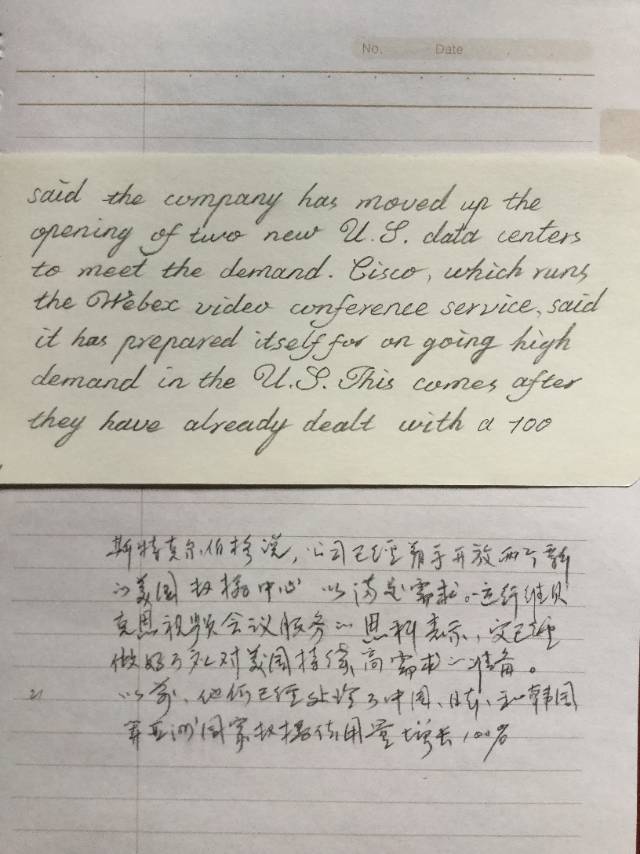 No. Date
said the company has moved up the
opening of two new U.S. data centers
to meet the demand. Cisco, which runs
the Webex video conference service, said
it has prepared itself for on going high
demand in the U.S. This comes after
they have already dealt with a 100
斯特克尔伯格说，公司已经着手开放两个新
的美国数据中心以满足需求。运行维贝
克思视频会议服务的思科表示，它已经
做好了应对美国持续高需求的准备。
以前，他们已经处理了中国、日本和韩国
等亚洲国家数据使用量增长100%